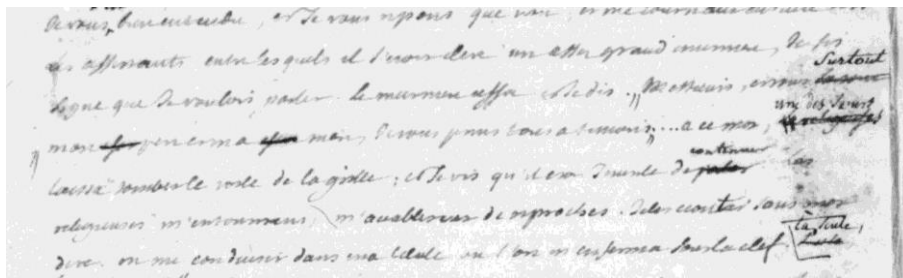 Je vous ai bien entendu, et Je vous repons que non, et me tournant ensuite
les assistants entre lesquels il s'etoit elevé un assez grand murmure, Je fis
signe que Je voulois parler. le murmure cessa et Je dis. „ Messieurs, et vous surtout
„ mon pere et ma mere, Je vous prens tous a temoins;... a ce mot, une des Sœurs
laissa tomber le voile de la grille; et Je vis qu'il etoit Inutile de continuer. Les
religieuses m'entourerent, m'accablerent de reproches. Je les ecoutai sans mot
dire. on me conduisit dans ma celule ou l'on m'enferma sous la clef. là Seule,